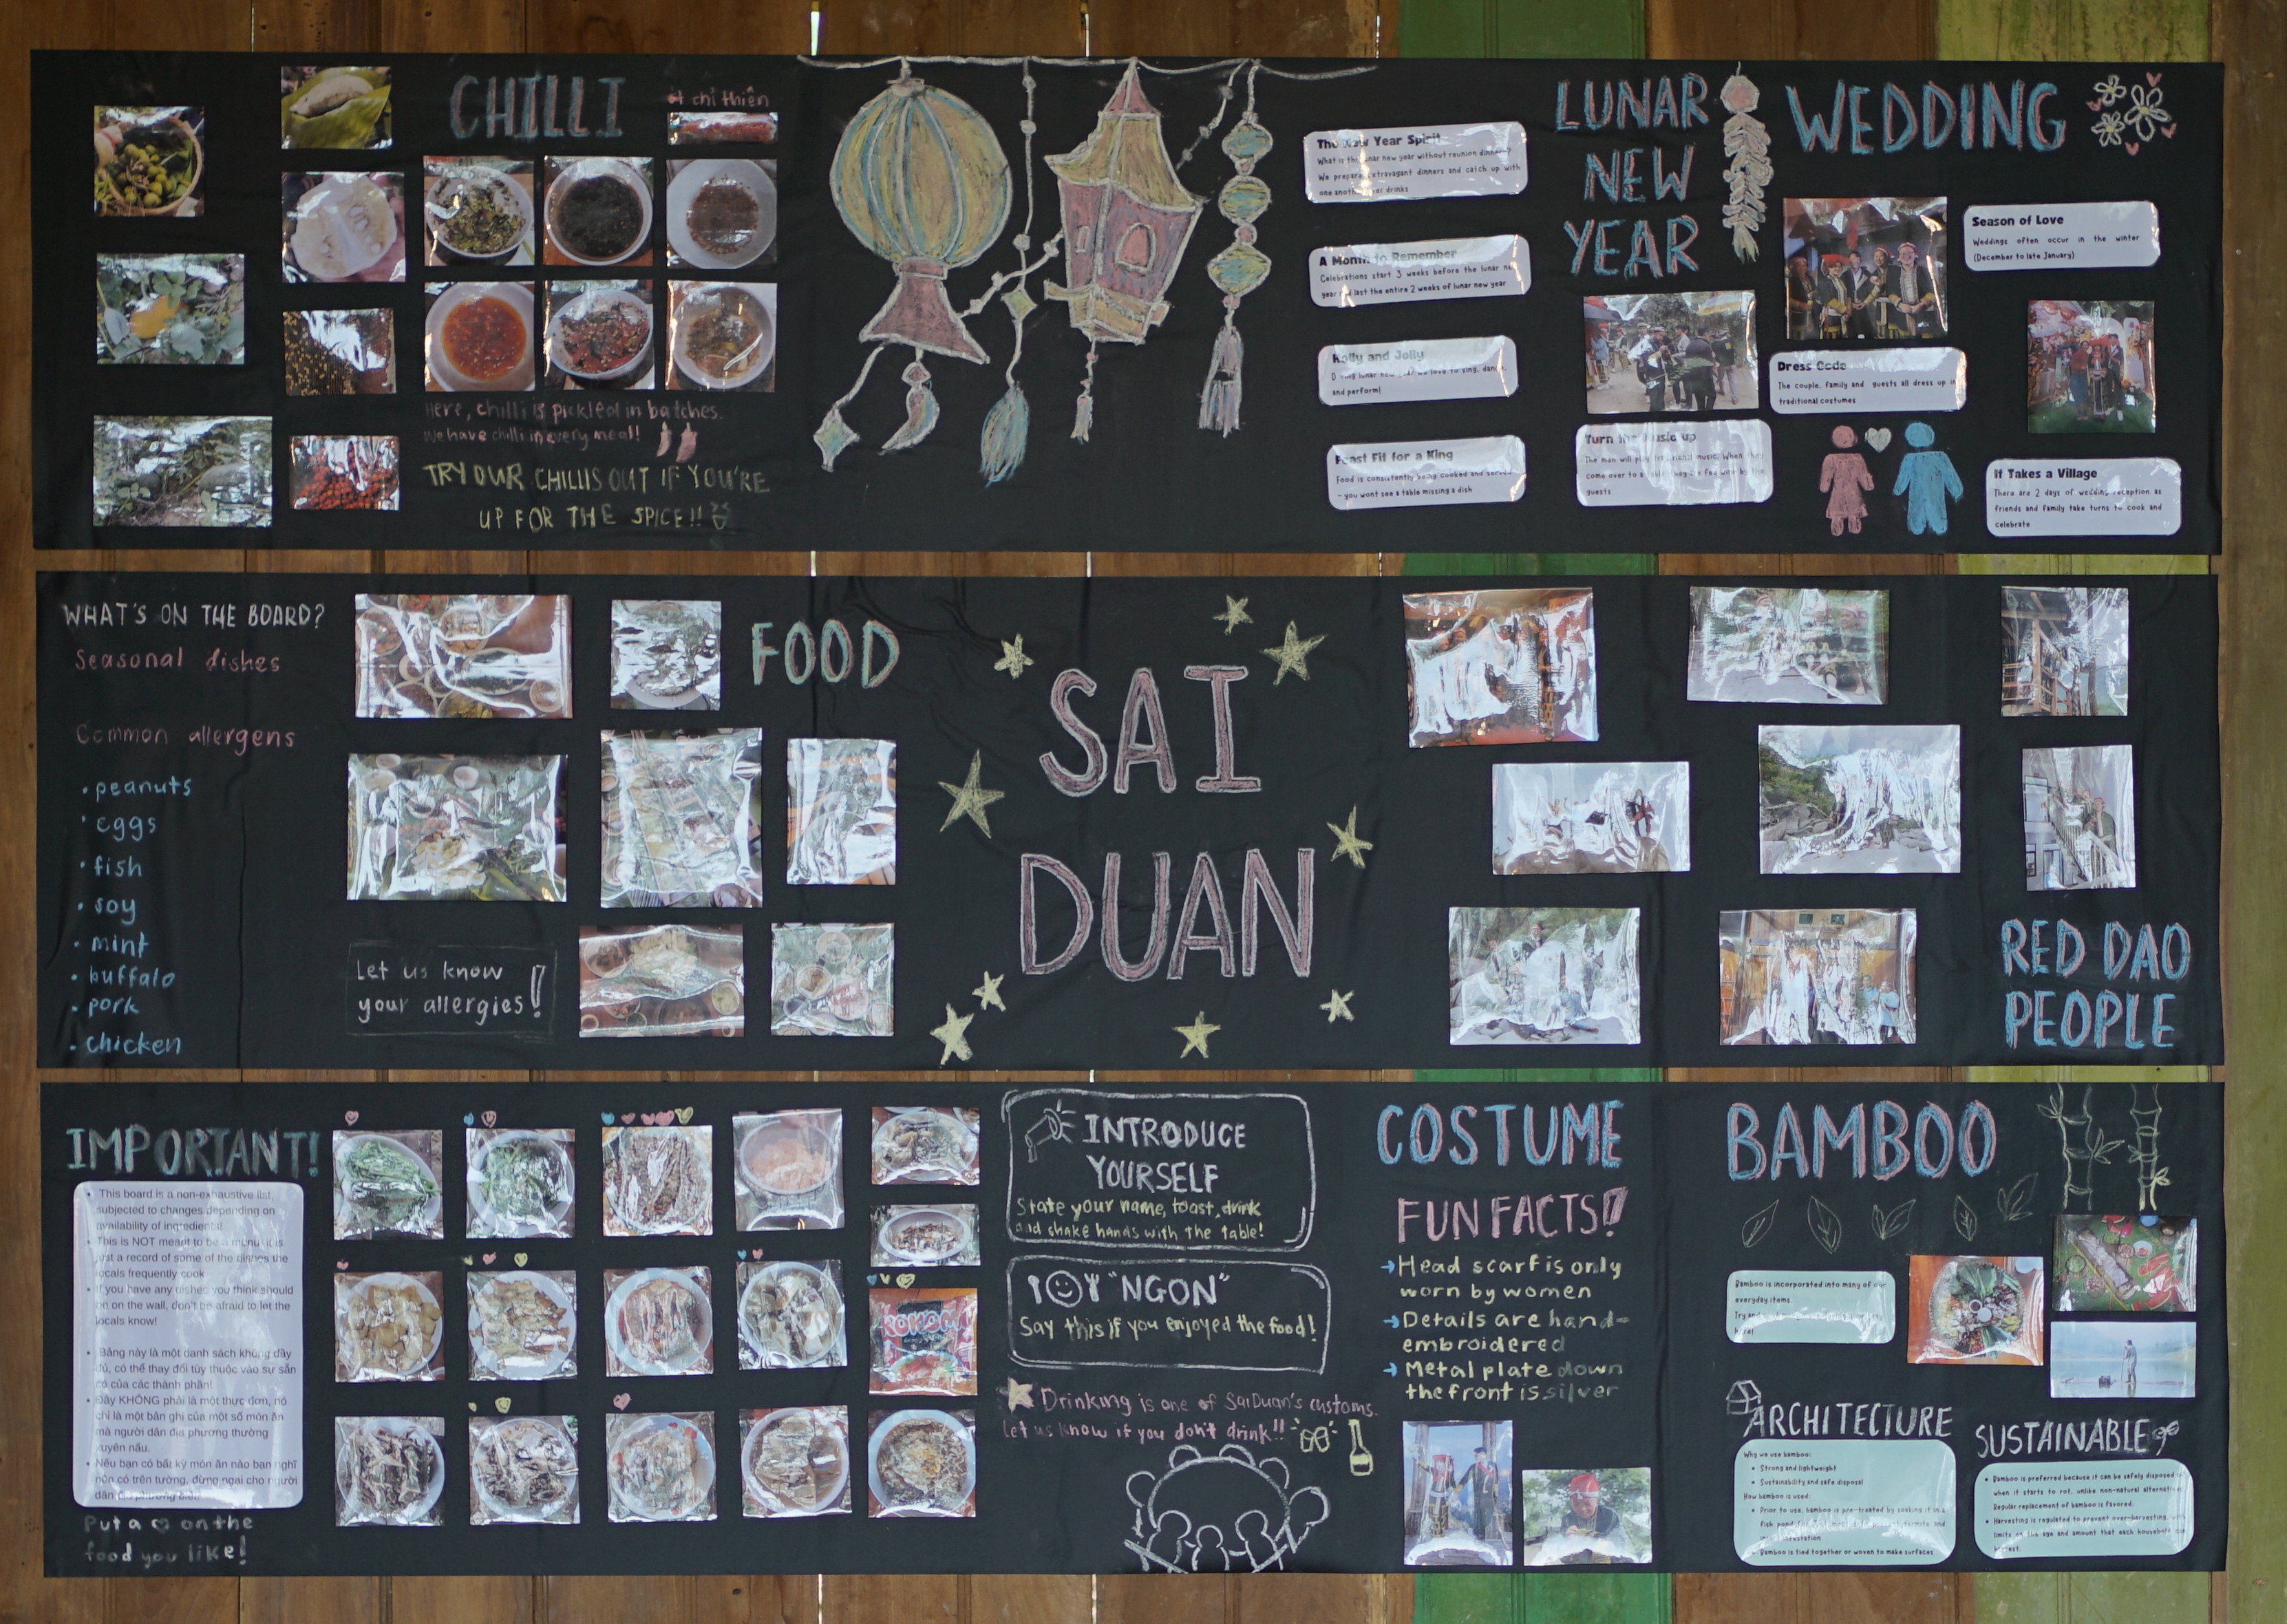 CHILLI
ớt chỉ thiên
Here, chilli is pickled in batches.
We have chilli in every meal!
TRY OUR CHILLIS OUT IF YOU'RE
UP FOR THE SPICE!!
The New Year Spirit
What is the lunar new year without reunion dinners?
We prepare extravagant dinners and catch up with
one another over drinks
A Month to Remember
Celebrations start 3 weeks before the lunar new
year and last the entire 2 weeks of lunar new year
Holly and Jolly
During lunar new year we love to sing, dance
and perform!
Feast Fit for a King
Food is consistently being cooked and served
- you wont see a table missing a dish
LUNAR
NEW
YEAR
Turn the Music up
The man will play traditional music. When they
come over to a
guests
WEDDING
Season of Love
Weddings often occur in the winter
(December to late January)
Dress Code
The couple, family and guests all dress up in
traditional costumes
It Takes a Village
There are 2 days of wedding reception as
friends and family take turns to cook and
celebrate
WHAT'S ON THE BOARD?
Seasonal dishes
Common allergens
• peanuts
• eggs
• fish
• soy
• mint
• buffalo
• pork
• chicken
Let us know
your allergies!
FOOD
SAI
DUAN
RED DAO
PEOPLE
IMPORTANT!
• This board is a non-exhaustive list,
subjected to changes depending on
availability of ingredients!
• This is NOT meant to be a menu, it is
just a record of some of the dishes the
locals frequently cook
• If you have any dishes you think should
be on the wall, don't be afraid to let the
locals know!
• Bảng này là một danh sách không đầy
đủ, có thể thay đổi tùy thuộc vào sự sẵn
có của các thành phần!
• Đây KHÔNG phải là một thực đơn, nó
chỉ là một bản ghi của một số món ăn
mà người dân địa phương thường
xuyên nấu.
• Nếu bạn có bất kỳ món ăn nào bạn nghĩ
nên có trên tường, đừng ngại cho người
dân địa phương biết!
Put a ♡ on the
food you like!
KOKOMI
INTRODUCE
YOURSELF
State your name, toast, drink
and shake hands with the table!
"NGON"
Say this if you enjoyed the food!
Drinking is one of Sai Duan's customs.
let us know if you don't drink!!
COSTUME
FUN FACTS!
→ Head scarf is only
worn by women
→ Details are hand-
embroidered
→ Metal plate down
the front is silver
BAMBOO
Bamboo is incorporated into many of our
everyday items.
Try
here!
ARCHITECTURE
Why we use bamboo:
• Strong and lightweight
• Sustainability and safe disposal
How bamboo is used:
• Prior to use, bamboo is pre-treated by soaking it in a
fish pond
• Bamboo is tied together or woven to make surfaces
SUSTAINABLE
• Bamboo is preferred because it can be safely disposed
when it starts to rot, unlike non-natural alternatives.
Regular replacement of bamboo is favored.
• Harvesting is regulated to prevent over-harvesting, with
limits on the age and amount that each household can
harvest.